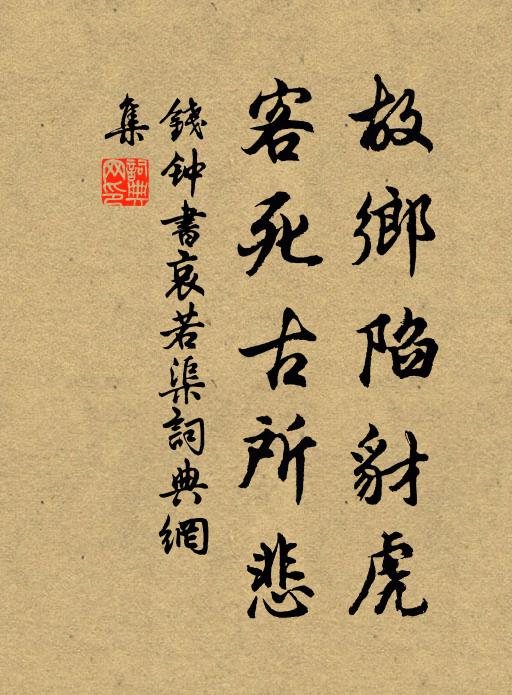 故鄉陷豺虎
客死古所悲
錢钟書哀若渠詞典網
集
詞典
网印